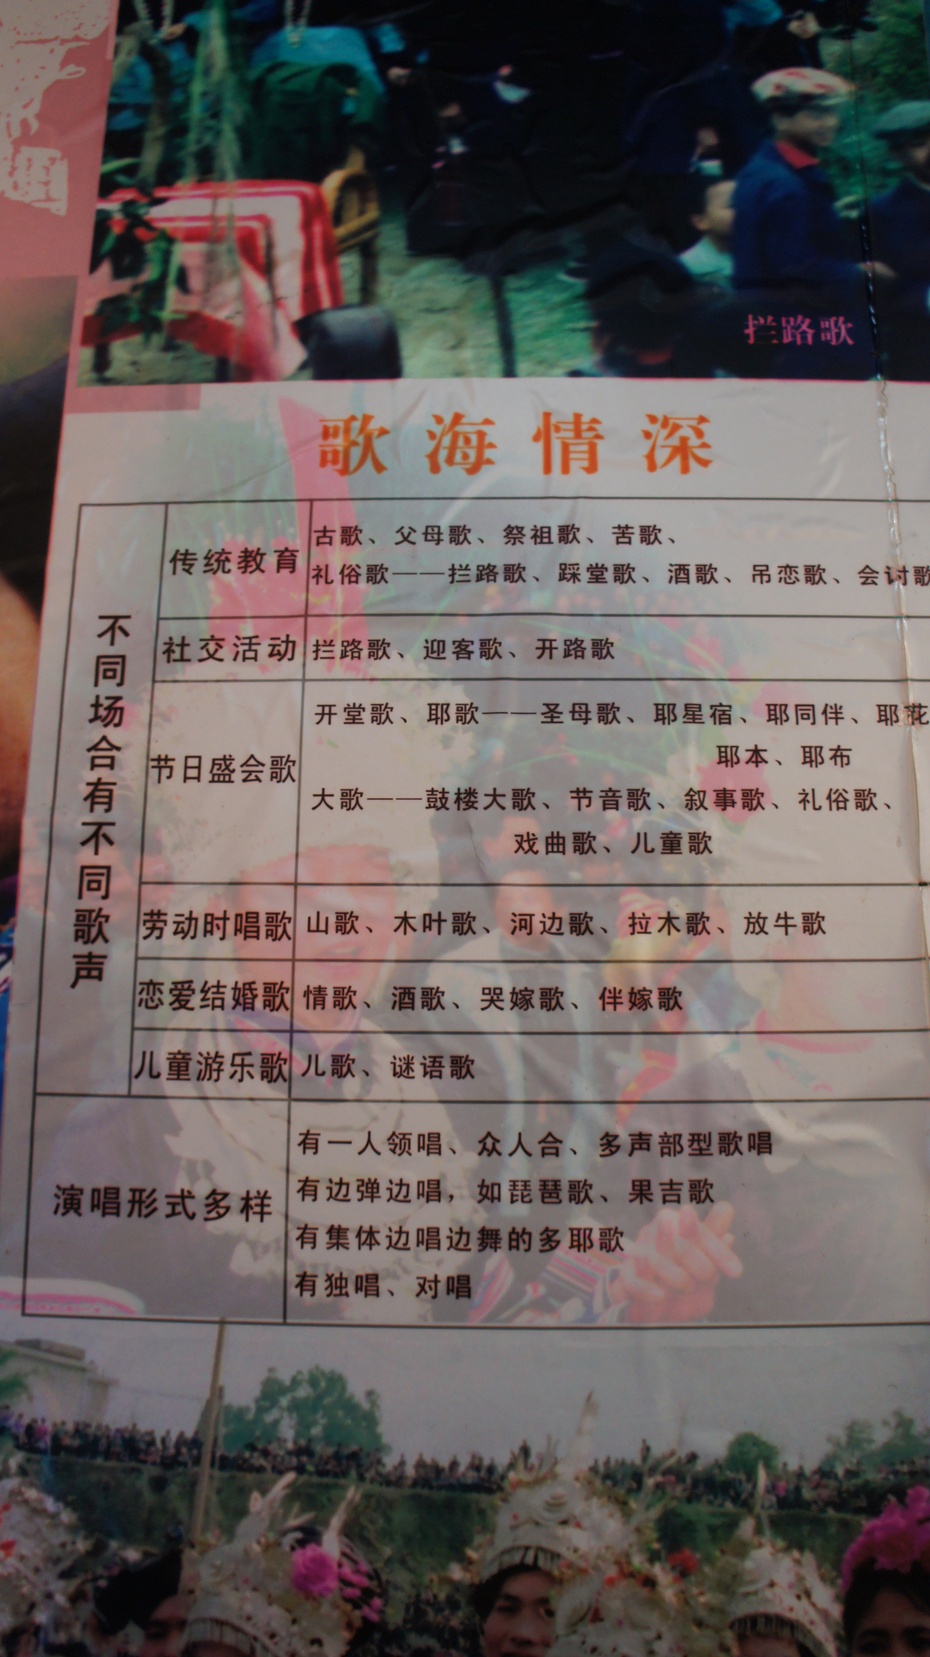 拦路歌
歌海情深
不同场合有不同歌声
传统教育
古歌、父母歌、祭祖歌、苦歌、
礼俗歌——拦路歌、踩堂歌、酒歌、吊恋歌、会讨歌
社交活动
拦路歌、迎客歌、开路歌
节日盛会歌
开堂歌、耶歌——圣母歌、耶星宿、耶同伴、耶花
耶本、耶布
大歌——鼓楼大歌、节音歌、叙事歌、礼俗歌、
戏曲歌、儿童歌
劳动时唱歌
山歌、木叶歌、河边歌、拉木歌、放牛歌
恋爱结婚歌
情歌、酒歌、哭嫁歌、伴嫁歌
儿童游乐歌
儿歌、谜语歌
演唱形式多样
有一人领唱、众人合、多声部型歌唱
有边弹边唱，如琵琶歌、果吉歌
有集体边唱边舞的多耶歌
有独唱、对唱